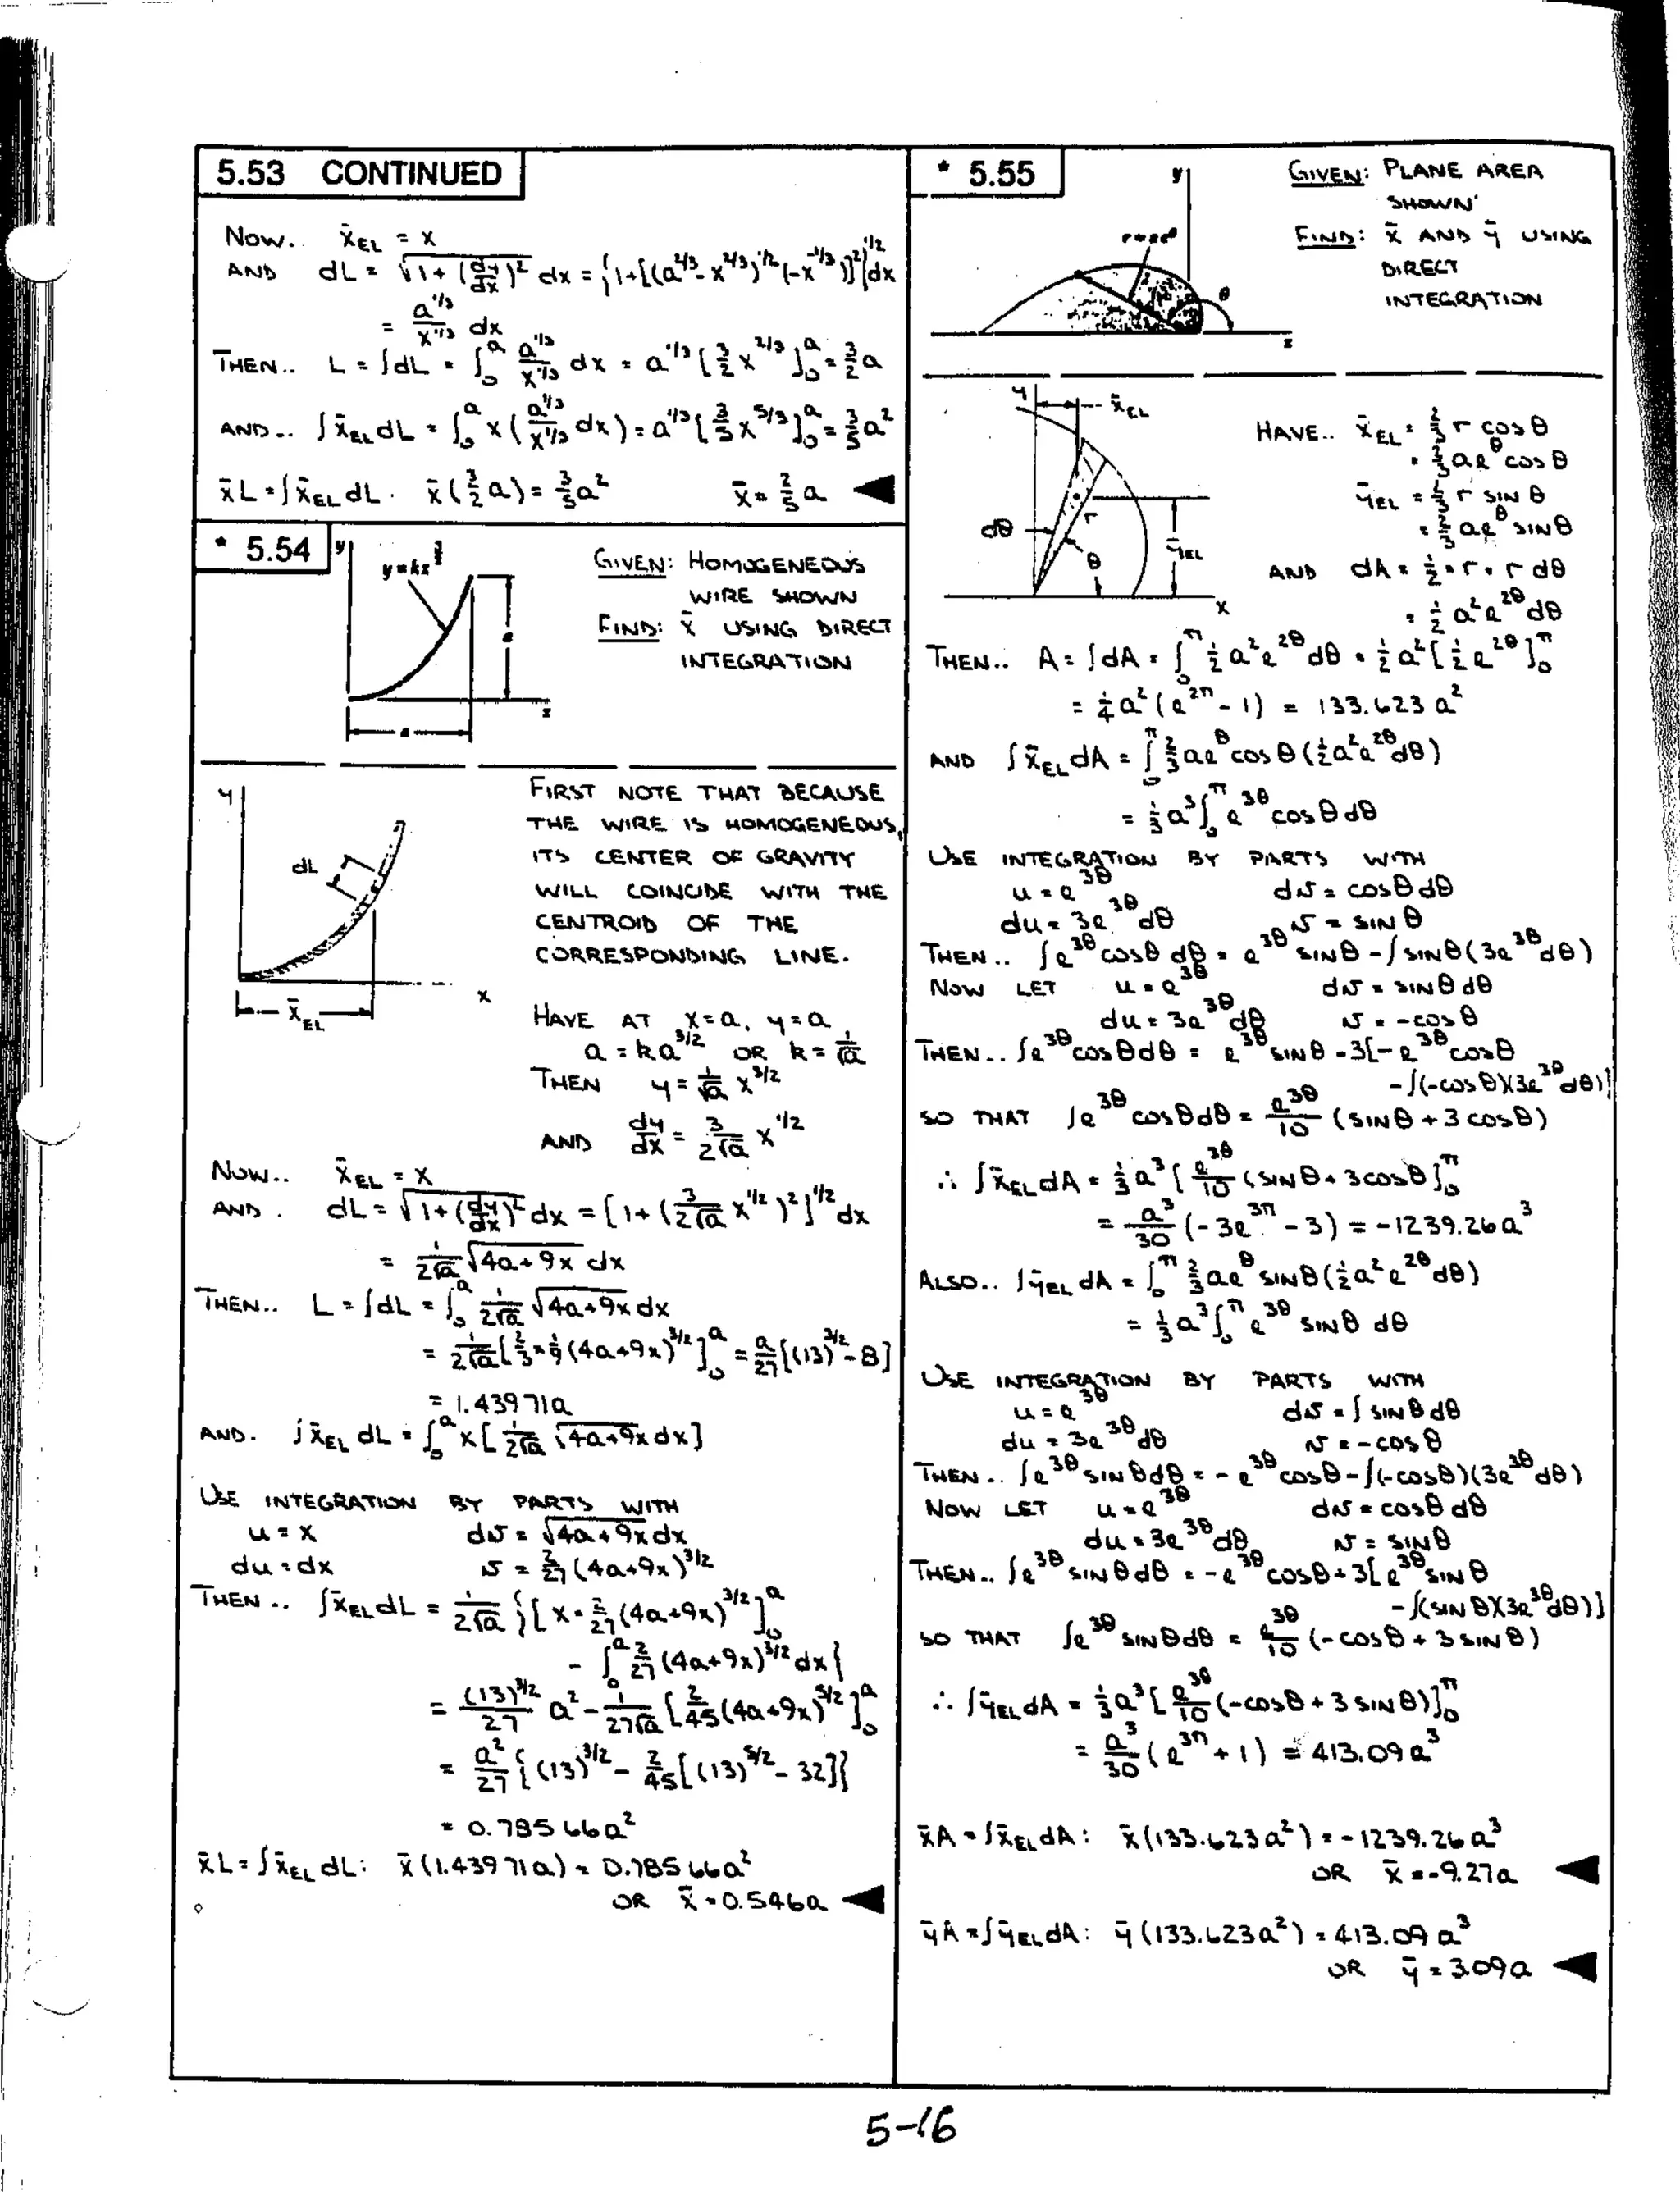 5.53 CONTINUED
NOW.. x̄EL = x
AND dL = √(1 + (dy/dx)²) dx = {1+[(a^2/3 - x^2/3)^1/2 (-x^-1/3)]²}^1/2 dx
= a^1/3 / x^1/3 dx
THEN.. L = ∫dL = ∫₀^a a^1/3 / x^1/3 dx = a^1/3 [3/2 x^2/3]₀^a = 3/2 a
AND.. ∫x̄EL dL = ∫₀^a x (a^1/3 / x^1/3 dx) = a^1/3 [3/5 x^5/3]₀^a = 3/5 a²
x̄L = ∫x̄EL dL . x̄(3/2 a) = 3/5 a² x̄ = 2/5 a ◀
* 5.54
y
y = kx^3/2
a
a
x
GIVEN: HOMOGENEOUS
WIRE SHOWN
FIND: x̄ USING DIRECT
INTEGRATION
y
dL
x̄EL
x
FIRST NOTE THAT BECAUSE
THE WIRE IS HOMOGENEOUS,
ITS CENTER OF GRAVITY
WILL COINCIDE WITH THE
CENTROID OF THE
CORRESPONDING LINE.
HAVE AT x = a, y = a
a = ka^3/2 OR k = 1/√a
THEN y = 1/√a x^3/2
AND dy/dx = 3/(2√a) x^1/2
NOW.. x̄EL = x
AND . dL = √(1 + (dy/dx)²) dx = [1 + (3/(2√a) x^1/2)²]^1/2 dx
= 1/(2√a) √(4a + 9x) dx
THEN.. L = ∫dL = ∫₀^a 1/(2√a) √(4a+9x) dx
= 1/(2√a) [2/3 × 1/9 (4a+9x)^3/2]₀^a = a/27 [(13)^3/2 - 8]
= 1.43971a
AND. ∫x̄EL dL = ∫₀^a x [1/(2√a) √(4a+9x) dx]
USE INTEGRATION BY PARTS WITH
u = x dv = √(4a+9x) dx
du = dx v = 2/27 (4a+9x)^3/2
THEN .. ∫x̄EL dL = 1/(2√a) {[x · 2/27 (4a+9x)^3/2]₀^a
- ∫₀^a 2/27 (4a+9x)^3/2 dx}
= (13)^3/2 / 27 a² - 1/(27√a) [2/45 (4a+9x)^5/2]₀^a
= a²/27 {(13)^3/2 - 2/45 [(13)^5/2 - 32]}
= 0.78566a²
x̄L = ∫x̄EL dL: x̄(1.43971a) = 0.78566a²
OR x̄ = 0.546a ◀
* 5.55
y
r = ae^θ
θ
x
GIVEN: PLANE AREA
SHOWN
FIND: x̄ AND ȳ USING
DIRECT
INTEGRATION
y
x̄EL
dθ
r
θ
ȳEL
x
HAVE.. x̄EL = 2/3 r cos θ
= 2/3 ae^θ cos θ
ȳEL = 2/3 r SIN θ
= 2/3 ae^θ SIN θ
AND dA = 1/2 · r · r dθ
= 1/2 a² e^2θ dθ
THEN.. A = ∫dA = ∫₀^π 1/2 a² e^2θ dθ = 1/2 a² [1/2 e^2θ]₀^π
= 1/4 a² (e^2π - 1) = 133.623 a²
AND ∫x̄EL dA = ∫₀^π 2/3 ae^θ cos θ (1/2 a² e^2θ dθ)
= 1/3 a³ ∫₀^π e^3θ cos θ dθ
USE INTEGRATION BY PARTS WITH
u = e^3θ dv = cos θ dθ
du = 3e^3θ dθ v = SIN θ
THEN .. ∫e^3θ cos θ dθ = e^3θ SIN θ - ∫SIN θ (3e^3θ dθ)
NOW LET u = e^3θ dv = SIN θ dθ
du = 3e^3θ dθ v = -cos θ
THEN .. ∫e^3θ cos θ dθ = e^3θ SIN θ - 3[-e^3θ cos θ
- ∫(-cos θ)(3e^3θ dθ)]
SO THAT ∫e^3θ cos θ dθ = e^3θ/10 (SIN θ + 3 cos θ)
∴ ∫x̄EL dA = 1/3 a³ [e^3θ/10 (SIN θ + 3 cos θ]₀^π
= a³/30 (-3e^3π - 3) = -1239.26a³
ALSO.. ∫ȳEL dA = ∫₀^π 2/3 ae^θ SIN θ (1/2 a² e^2θ dθ)
= 1/3 a³ ∫₀^π e^3θ SIN θ dθ
USE INTEGRATION BY PARTS WITH
u = e^3θ dv = ∫ SIN θ dθ
du = 3e^3θ dθ v = -cos θ
THEN .. ∫e^3θ SIN θ dθ = -e^3θ cos θ - ∫(-cos θ)(3e^3θ dθ)
NOW LET u = e^3θ dv = cos θ dθ
du = 3e^3θ dθ v = SIN θ
THEN.. ∫e^3θ SIN θ dθ = -e^3θ cos θ + 3[e^3θ SIN θ
- ∫(SIN θ)(3e^3θ dθ)]
SO THAT ∫e^3θ SIN θ dθ = e^3θ/10 (-cos θ + 3 SIN θ)
∴ ∫ȳEL dA = 1/3 a³ [e^3θ/10 (-cos θ + 3 SIN θ)]₀^π
= a³/30 (e^3π + 1) = 413.09a³
x̄A = ∫x̄EL dA: x̄(133.623a²) = -1239.26a³
OR x̄ = -9.27a ◀
ȳA = ∫ȳEL dA: ȳ(133.623a²) = 413.09 a³
OR ȳ = 3.09a ◀
5-16